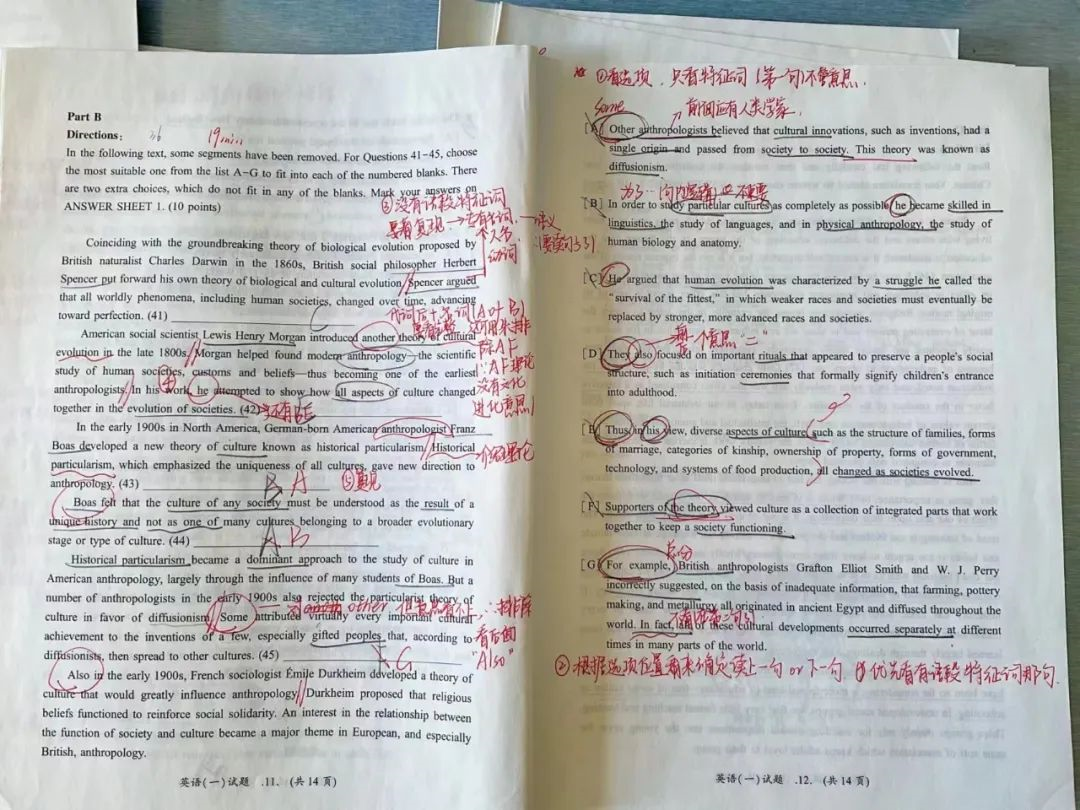 Part B
Directions:
36 19min
In the following text, some segments have been removed. For Questions 41-45, choose
the most suitable one from the list A-G to fit into each of the numbered blanks. There
are two extra choices, which do not fit in any of the blanks. Mark your answers on
ANSWER SHEET 1. (10 points)
③没有话段特征词
Coinciding with the groundbreaking theory of biological evolution proposed by
British naturalist Charles Darwin in the 1860s, British social philosopher Herbert
Spencer put forward his own theory of biological and cultural evolution. Spencer argued
that all worldly phenomena, including human societies, changed over time, advancing
toward perfection. (41)
C
American social scientist Lewis Henry Morgan introduced another theory of cultural
evolution in the late 1800s. Morgan helped found modern anthropology—the scientific
study of human societies, customs and beliefs—thus becoming one of the earliest
anthropologists. In his work, he attempted to show how all aspects of culture changed
together in the evolution of societies. (42)
In the early 1900s in North America, German-born American anthropologist Franz
Boas developed a new theory of culture known as historical particularism. Historical
particularism, which emphasized the uniqueness of all cultures, gave new direction to
anthropology. (43)
B A
Boas felt that the culture of any society must be understood as the result of a
unique history and not as one of many cultures belonging to a broader evolutionary
stage or type of culture. (44)
A B
Historical particularism became a dominant approach to the study of culture in
American anthropology, largely through the influence of many students of Boas. But a
number of anthropologists in the early 1900s also rejected the particularist theory of
culture in favor of diffusionism. Some attributed virtually every important cultural
achievement to the inventions of a few, especially gifted peoples that, according to
diffusionists, then spread to other cultures. (45)
F G
看后面
"Also"
Also in the early 1900s, French sociologist Émile Durkheim developed a theory of
culture that would greatly influence anthropology. Durkheim proposed that religious
beliefs functioned to reinforce social solidarity. An interest in the relationship between
the function of society and culture became a major theme in European, and especially
British, anthropology.
英语(一)试题 .11. (共14页)
①看选项,只看特征词(第一句)不管意思.
Some
前面还有人类学家.
[A] Other anthropologists believed that cultural innovations, such as inventions, had a
single origin and passed from society to society. This theory was known as
diffusionism.
[B] In order to study particular cultures as completely as possible, he became skilled in
linguistics, the study of languages, and in physical anthropology, the study of
human biology and anatomy.
[C] He argued that human evolution was characterized by a struggle he called the
"survival of the fittest," in which weaker races and societies must eventually be
replaced by stronger, more advanced races and societies.
[D] They also focused on important rituals that appeared to preserve a people's social
structure, such as initiation ceremonies that formally signify children's entrance
into adulthood.
[E] Thus, in his view, diverse aspects of culture, such as the structure of families, forms
of marriage, categories of kinship, ownership of property, forms of government,
technology, and systems of food production, all changed as societies evolved.
[F] Supporters of the theory viewed culture as a collection of integrated parts that work
together to keep a society functioning.
总分
[G] For example, British anthropologists Grafton Elliot Smith and W. J. Perry
incorrectly suggested, on the basis of inadequate information, that farming, pottery
making, and metallurgy all originated in ancient Egypt and diffused throughout the
world. In fact, all of these cultural developments occurred separately at different
times in many parts of the world.
②根据选项位置看来确定读上一句 or 下一句. ④优先看有话段特征词那句.
英语(一)试题 .12. (共14页)